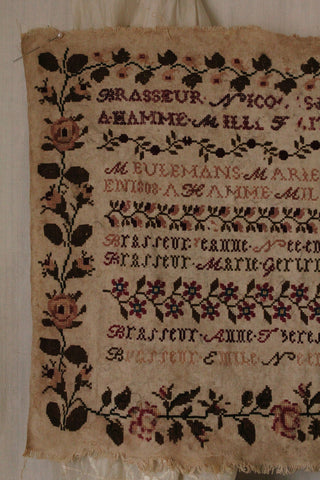 BRASSEUR · NICO
A · HAMME · MILL
MEULEMANS MARIE
EN 1808 · A HAMME · MIL
BRASSEUR JEANNE · NEE · EN
BRASSEUR · MARIE · GERTR
BRASSEUR · ANNE · THERES
BRASSEUR · EMILE · NEE